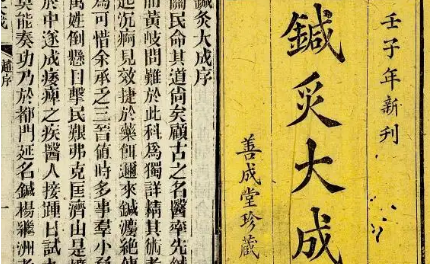 壬子年新刊
鍼灸大成
善成堂珍藏
鍼灸大成序
關民命其道尙矣顧古之名醫率先鍼
而黃岐問難於此科爲獨詳精其術者
起沉疴見效捷於藥餌邇來鍼灸絕
爲可惜余承乏三晉值時多事羣小
萬姓倒懸目擊民艱弗克匡濟由是
於中遂成痿痺之疾醫人接踵日試
莫能奏功乃於都門延名鍼楊繼洲者
趙序